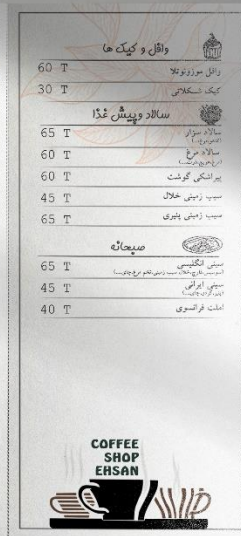 وافل و کیک ها
وافل موزونوتلا 60 T
کیک شکلاتی 30 T
سالاد و پیش غذا
سالاد سزار 65 T
سالاد مرغ 60 T
پیراشکی گوشت 60 T
سیب زمینی خلال 45 T
سیب زمینی پنیری 65 T
صبحانه
سینی انگلیسی 65 T
سینی ایرانی 45 T
املت فرانسوی 40 T
COFFEE
SHOP
EHSAN